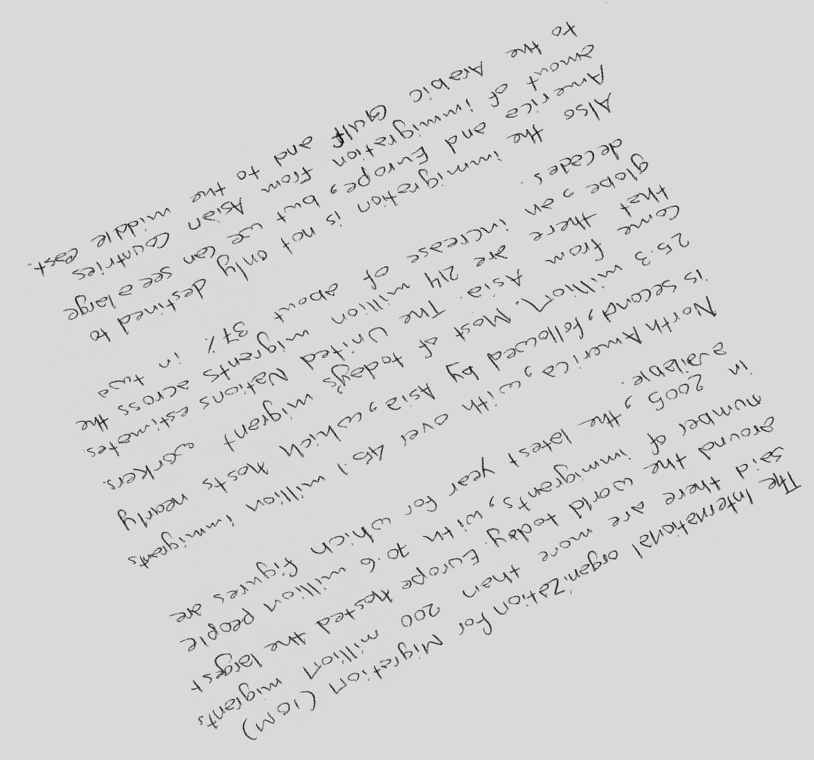 The International organization for Migration (IOM)
said there are more than 200 million migrants
around the world today. Europe hosted the largest
number of immigrants, with 70.6 million people
in 2005, the latest year for which figures are
available.
North America, with over 45.1 million immigrants
is second, followed by Asia, which hosts nearly
25.3 million. Most of today's migrant workers.
come from Asia. The United Nations estimates.
that there are 214 million migrants across the
globe, an increase of about 37% in two
decades.
Also the immigration is not only destined to
America and Europe, but we can see a large
amout of immigration from Asian countries
to the Arabic Gulf and to the middle east.